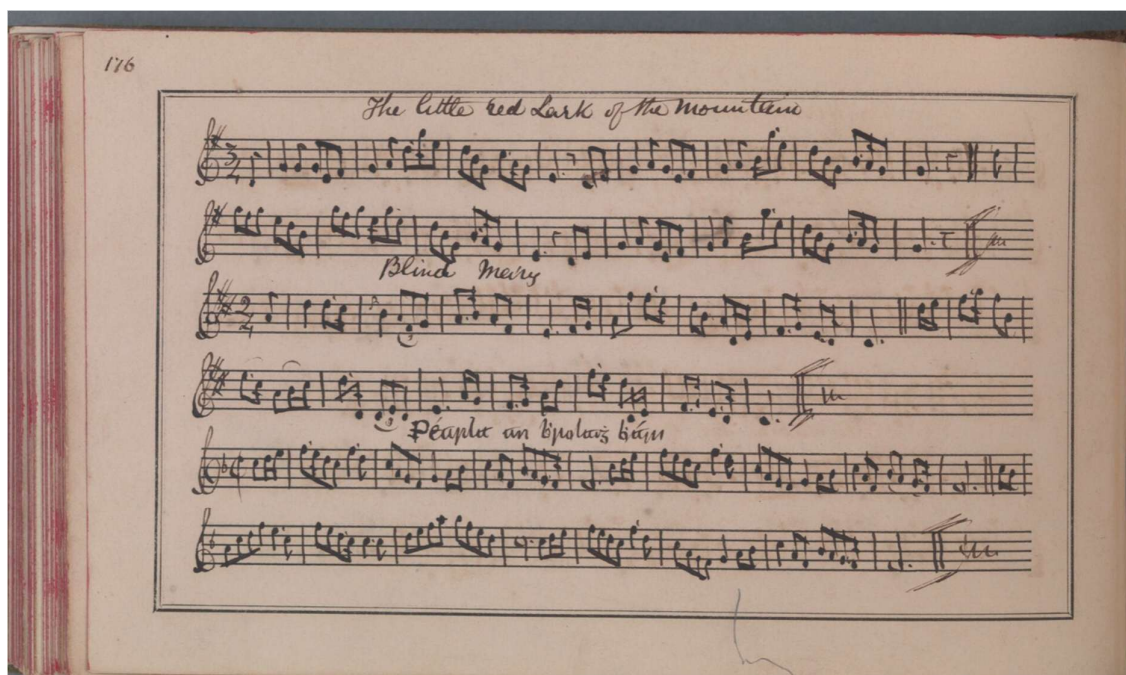 176
The little red Lark of the mountain
Blind Mary
Péarla an ḃrolaiġ ḃáin